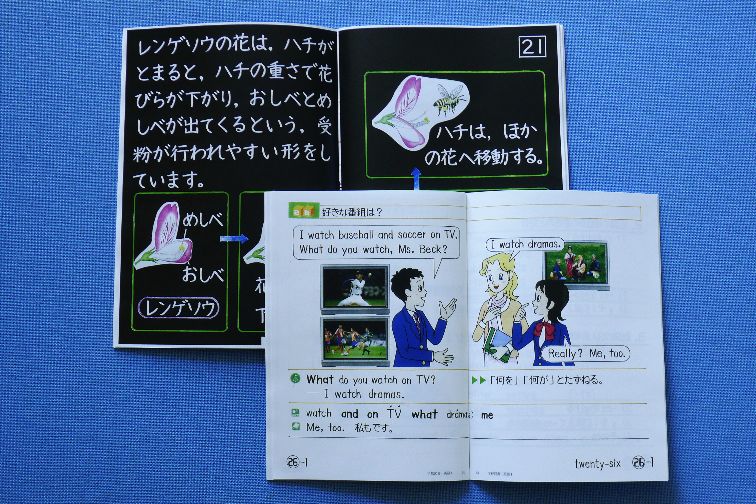 レンゲソウの花は，ハチが
とまると，ハチの重さで花
びらが下がり，おしべとめ
しべが出てくるという，受
粉が行われやすい形をし
ています。
めしべ
おしべ
レンゲソウ
21
ハチは，ほか
の花へ移動する。
好きな番組は？
I watch baseball and soccer on TV.
What do you watch, Ms. Beck?
I watch dramas.
Really? Me, too.
What do you watch on TV?
I watch dramas.
▶▶「何を」「何が」とたずねる。
watch and on TV what dramas me
Me, too. 私もです。
26-1
twenty-six 26-1